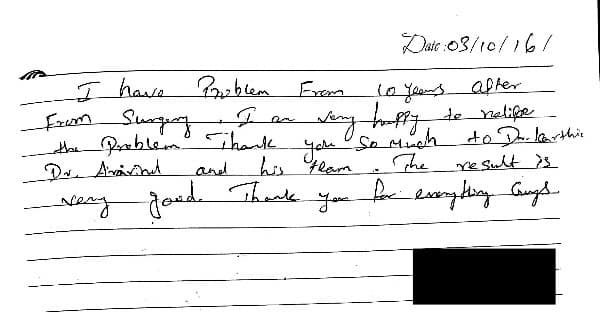 Date: 03/10/16/
I have Problem From 10 years after
From Surgery. I am very happy to relife
the Problem Thank you So Much to Dr. Karthic
Dr. Aravind and his team. The result is
very good. Thank you for everything Guys